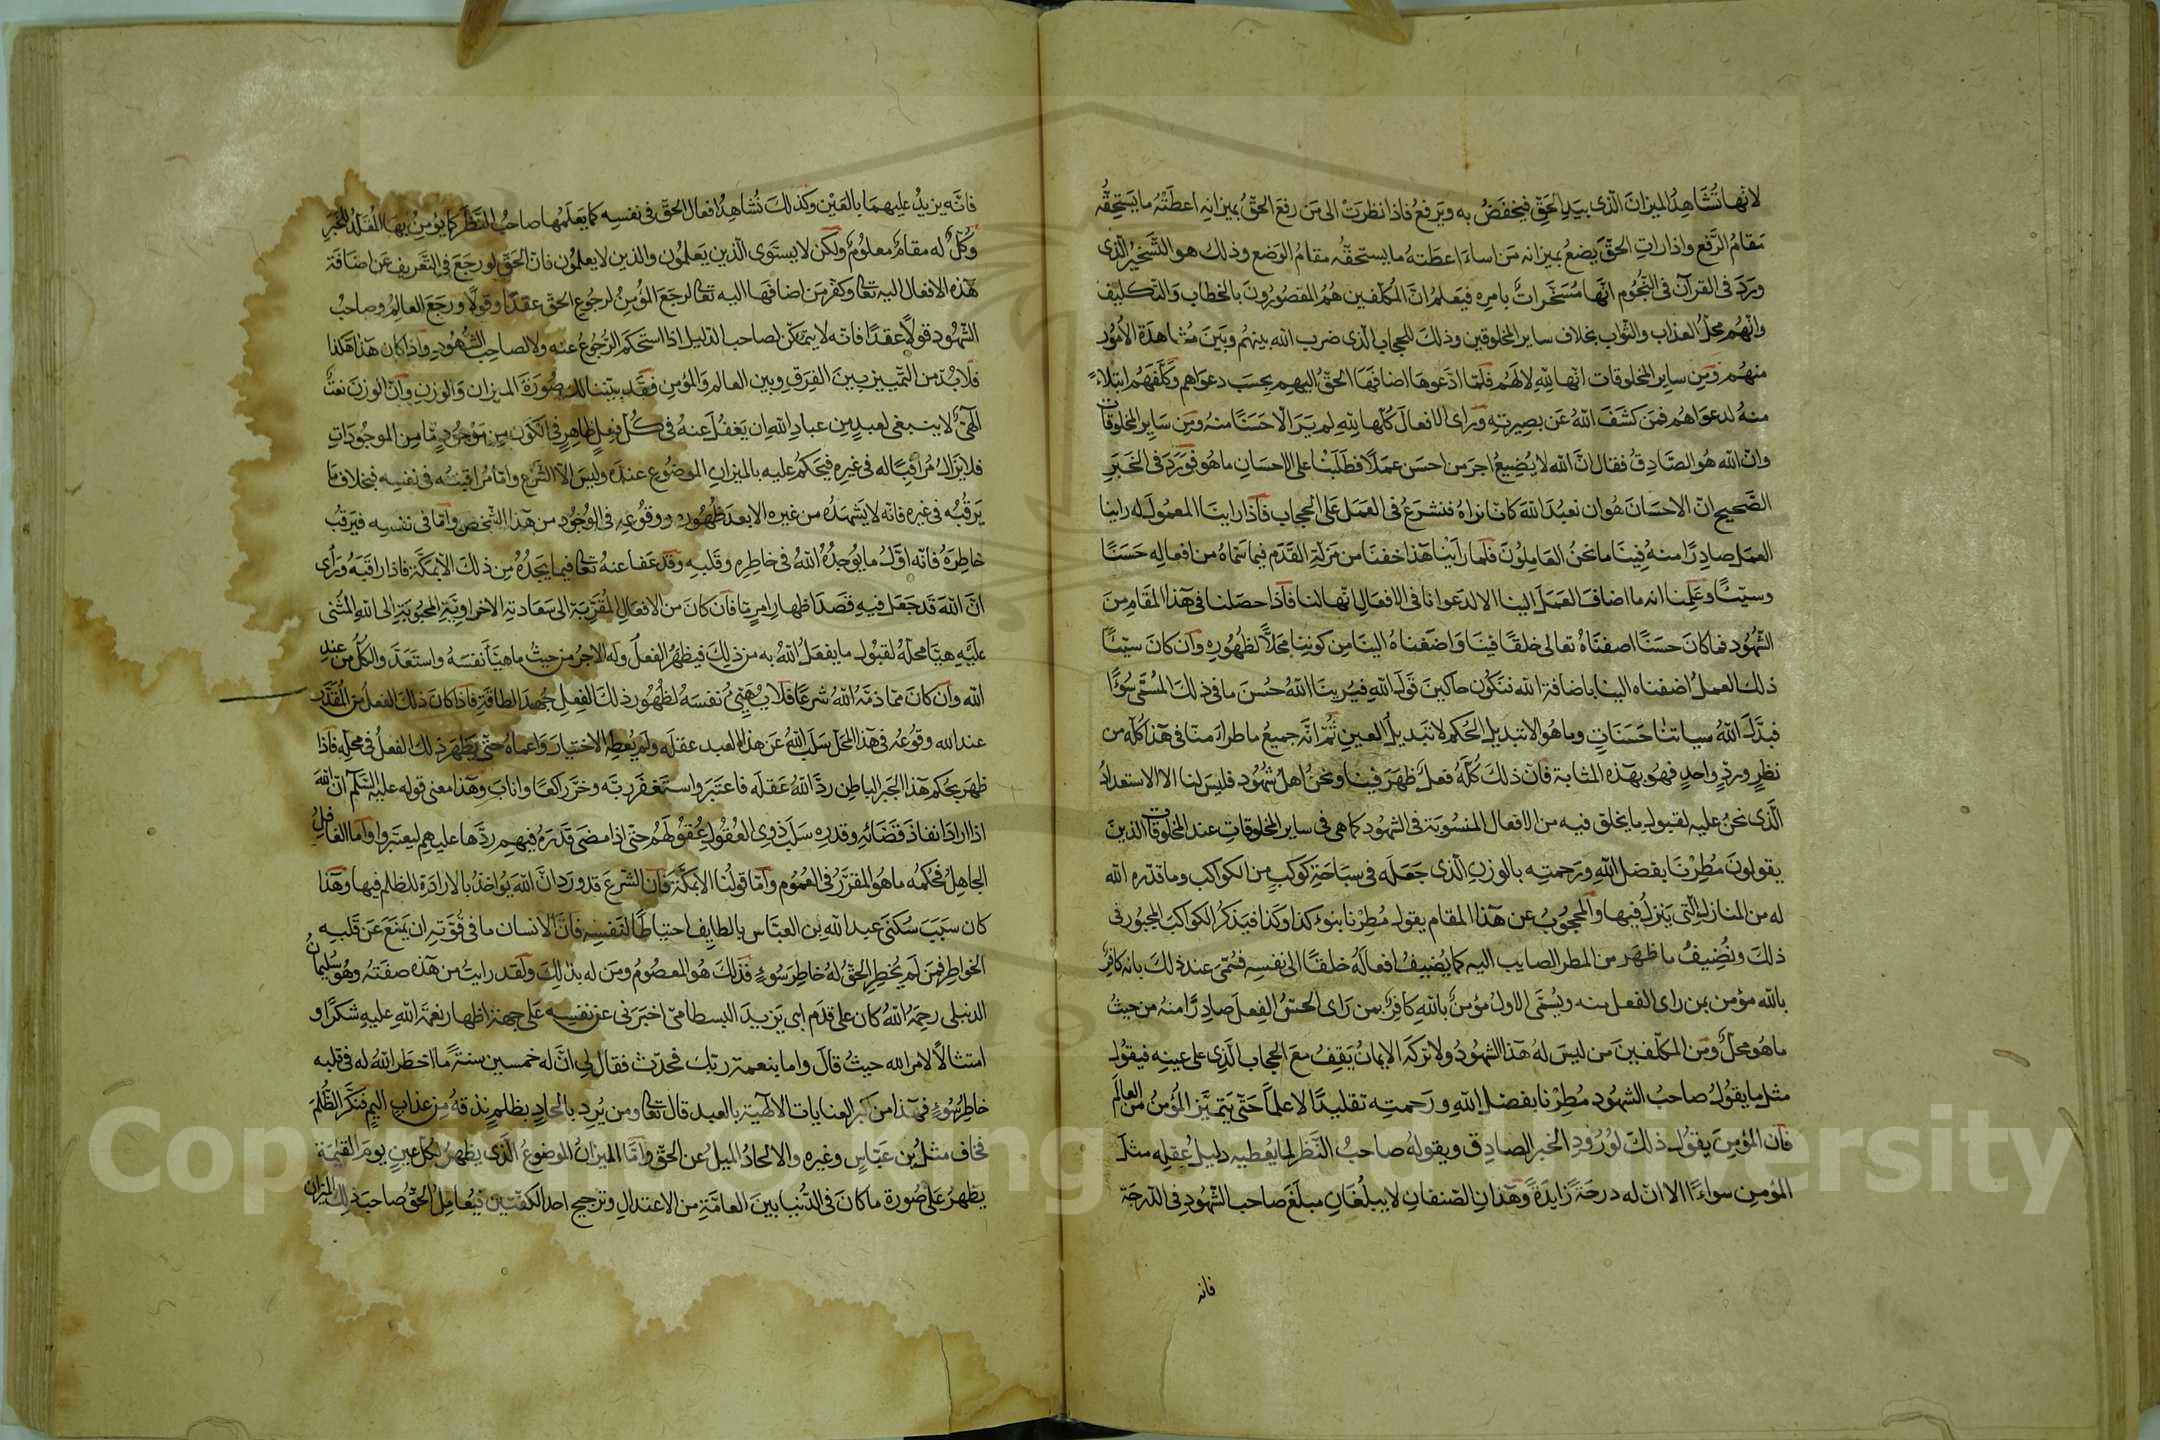 لانها تُشَاهِدُ الميزانَ الّذى بيدِ الحَقِّ فيخفضُ به ويرفعُ فاذا نظرتْ الى مَن رفعَ الحقُّ بميزانِهِ اعطَتْهُ ما يَستحِقّهُ
مَقامُ الرَّفعِ واذا راتِ الحقَّ يَضعُ بميزانهِ مَن اساءَ اعطَته ما يستحقّهُ مقامُ الوَضعِ وذلك هو التَّسخيرُ الّذى
وَرَدَ فى القرآن فى النّجُوم انّها مُسَخّراتٌ بامرِه فيَعلمُ انَّ المُكلّفين هُمُ المقصُورُونَ بالخطابِ والتّكليف
وانّهُم محلُّ العذاب والثواب بخلاف ساير المخلوقين وذلكَ للحجاب الّذى ضرب الله بينهُم وبَينَ مشاهدَة الاُمُور
منهُم ومِن سايرِ المخلوقات انّها للّهِ لا لهُم فلمّا ادَّعوهَا اضافهَا الحقُّ اليهم بحِسَب دعوَاهم وكلّفهُم ابتلاءً
منهُ لدعوَاهُم فمَن كشَفَ اللهُ عَن بصِيرته وراى الافعالَ كلّها للّهِ لم يَرَ الّا حَسَنًا منهُ ومِن سَايرِ المخلوقات
وانّ الله هُو الصَّادِقُ فقال انَّ الله لا يُضِيعُ اجرَ من احسَن عمَلاً فطَلَبْنا على الإحسَانِ ما هُو فوَرَدَ فى الخَبَرِ
الصَّحيح انّ الاحسَانَ هُو ان نعبُدَ اللهَ كانّا نراهُ فنشرَعُ فى العمَل عَلى الحجاب فاذا راينَا المعمُولَ له راينا
العمَلَ صادِرًا منهُ فِينَا ما نحنُ العَامِلُونَ فلمّا رأيْنا هَذا خفنَا من مَزلّةِ القدَم فيما سَمّاهُ من افعالِه حَسَنًا
وسيّئًا وعَلِمنا انه ما اضافَ العَمَلَ الينا الا لدعوانا فى الافعالِ انّها لنا فاذا حصَلنا فى هَذا المقَامِ مِنَ
الشّهُود فما كانَ حسَنًا اضفناهُ تعالى خلقًا فينَا واضَفناهُ الينَا مِن كونِنا محَلًّا لظهُورِه وان كانَ سيّئًا
ذلك العملُ اضفناه الينا باضافة الله فنكُون حاكينَ قولَ اللهِ فيُرينَا اللهُ حُسنَ ما فى ذلكَ المُسمَّى سُوءًا
فبَدَّلَ اللهُ سياتنا حَسَناتٍ وما هُو الا تبديلُ الحُكم لا تبديلُ العينِ ثُمّ انّه جميعُ ما طراَ منّا فى هذا كلّه من
نظرٍ وردٍّ واحدٍ فهو بهذه المثابة فانّ ذلكَ كلّهُ فعلٌ ظهَرَ فينا ونحنُ اهلُ شهُود فليسَ لنا الا الاستعدادُ
الّذى نحنُ عليه لقبولِ ما يخلق فيه من الافعال المنسُوبة فى الشّهود كما هى فى ساير المخلوقاتِ عند المخلوقات الذينَ
يقولونَ مُطِرْنَا بفضل اللهِ ورَحمتِه بالوزنِ الّذى جَعَلَه فى سِبَاحَةِ كَوكَبٍ من الكواكب وما قدّره الله
له من المنازلِ الّتى يَنزلُ فيها والمحجُوبُ عن هَذا المقام يقولُ مُطِرْنا بنوءِ كذا وكذا فيَذكرُ الكواكبَ المجبُور فى
ذلكَ ونُضِيفُ ما ظهَر من المطر الصايب اليه كما يُضِيفُ افعالَهُ خلقًا الى نفسِه فسُمّىَ عند ذلكَ بانه كافِرٌ
بالله مؤمن بمن راى الفعل منه ويُسمّى الاولُ مؤمنٌ باللهِ كافِرٌ بمن رَاى الحِسُّ الفعلَ صادِرًا منهُ من حيثُ
ما هُو محلٌّ ومِن المكلّفينَ من ليسَ لهُ هذا الشّهُودُ ولا تركَه الايمانُ يَقِفُ معَ الحجاب الّذِى على عينِهِ فيقُولُ
مثلَ ما يقولُ صاحبُ الشّهُود مُطِرْنا بفضل اللهِ ورَحمتِه تقليدًا لا علماً حَتّى يَتميَّز المؤمنُ مِنَ العالَم
فانّ المؤمِنَ يقُولُ ذلكَ لوُرُودِ الخَبرِ الصادِق ويقولهُ صاحبُ النَّظر لما يُعطيه دليلُ عقلِه مثلَ
المؤمن سواءً الا انّ له درجَةً زايدَةً وهَذانِ الصّنفانِ لا يبلُغَانِ مبلَغَ صاحب الشّهُودِ فى الدّرجَة
فانه
فانّه يزيدُ عليهما بالعَيْنِ وكذلكَ نُشاهِدُ افعال الحقّ فى نفسِه كما يَعلمُها صاحبُ النّظر كما يُؤمنُ بها المُقلّدُ للخَبَر
وكلٌّ له مقامٌ معلُومٌ ولكن لا يستوى الّذين يَعلمُون والذين لا يعلمُون فانّ الحَقّ لو رجَعَ فى التّعريف عَن اضافَة
هَذه الافعال اليه تعالى وكفّر مَن اضافَها اليه تعالى لرجَعَ المؤمنُ لرجُوع الحقّ عقدًا وقولًا ورجَعَ العالِمُ وصاحبُ
الشّهُود قولًا لا عقدًا فانّه لا يتمكّن لصاحب الدّليل اذا استَحكَم الرّجُوعُ عنه ولا لصاحب الشّهُود واذا كان هَذا هَكذا
فلابُدّ من التّمييز بينَ الفِرَقِ وبين العالم والمؤمن فقد بيّنا لكَ صُورَةَ الميزان وَالوزنِ وانّ الوزنَ نعتٌ
الهىٌّ لا ينبغى لعبدٍ من عباد اللهِ ان يَغفُلَ عنهُ فى كلّ فعلٍ ظاهِرٍ فى الكَونِ مِن مَوجُودٍ مّا مِنَ الموجُوداتِ
فلا يزالُ مُراقبًا له فى غيرِه فيحكمُ عليه بالميزانِ الموضُوع عنده وليسَ الّا الشّرع وامّا مُراقبتُه فى نفسِه فبخلاف ما
يَرقُبُه فى غيرِه فانّه لا يشهَدُه من غيره الا بعدَ ظهُورِه ووقُوعِه فى الوُجُودِ من هَذا الشّخص وامّا فى نفسِه فيَرقبُ
خاطِرَهُ فانّه اوّلُ ما يُوجِدُهُ اللهُ فى خاطِرِه وقَلبِه وقد عَفا عنهُ تعالى فيما يَجدُه مِن ذلكَ الّا بمكّةَ فاذا راقبَه ورَأى
انَّ اللهَ قد جَعلَ فيهِ قصَدَ اظهار امرٍ ما فان كانَ من الافعالِ المُقرّبة الى سَعَادته الاخراويّةِ المحبُوبَةِ الى اللهِ المُثنى
عَليهِ هيّا محلّه لقبُولِ ما يفعَلُ اللهُ به من ذلكَ فيظهَرُ الفعلُ ولهُ الاجرُ من حيثُ ما هيّأ نفسَهُ واستعَدَّ والكلُّ من عندِ
الله وان كانَ ممّا ذمّه اللهُ شرعًا فلا يُهَيّئ نفسَهُ لظهُورِ ذلكَ الفعلِ جُهدَ الطاقة فاذا كانَ ذلكَ الفعلُ من المُقدّر
عند الله وقوعُه فى هَذا المحَل سَلَبَ اللهُ عَن هَذا العبد عقلَه ولم يُعطِه الاختيارَ واعماهُ حتّى يَظهَر ذلك الفعلُ فى محلّه فاذا
ظهَر بحُكم هَذا الجبر الباطِن ردَّ اللهُ عَقلَه فاعتَبَرَ واستغفَر ربّه وخرَّ راكعًا وانابَ وهَذا معنى قوله عليه السّلم انّ الله
اذا ارادَ انفاذ قضَائهِ وقدرِه سَلَبَ ذوى العُقُولِ عُقُولَهُم حتّى اذا مضَى قدَرَهُ فيهم ردَّها عليهم ليعتبروا وامّا الغافلُ
الجاهِلُ فحُكمُه ما هُو المقرّرُ فى العمُوم وامّا قولنا الّا بمكّة فانّ الشّرعَ قد ورَدَ انَّ اللهَ يُؤاخذُ بالارادَة للظلم فيها وهَذا
كان سَبَبَ سُكنى عبد الله بن العبّاس بالطايف احتياطًا لنفسِه فانّ الانسان ما فى قوّته ان يَمنَعَ عَن قَلبِه
الخواطِر فمَن لَم يُخطِرِ الحقُّ لهُ خاطِرَ سُوءٍ فذلكَ هُو المعصُومُ ومَن له بذلكَ ولقد رايتُ من هذه صفتهُ وهُو سُليمانُ
الدنبلى رحمَهُ اللهُ كان على قدَم ابى يَزيدَ البسطامى اخبَرَنى عن نفسِه على جهَة اظهار نعمَةِ اللهِ عليه شكرًا و
امتثالًا لامر الله حيثُ قالَ واما بنعمة ربّك فحدّث فقال لى انّ له خمسين سنةً ما اخطَر اللهُ له فى قلبه
خاطِر سُوءٍ فهَذا من اكبر العنايات الالهيّة بالعبد قال تعالى ومن يُرِد بالحادٍ بظلمٍ نذقهُ من عذابٍ اليمٍ فنكّر الظّلمَ
فخاف مثلُ بن عبّاسٍ وغيرِه والالحادُ الميلُ عن الحقّ وامّا الميزانُ الموضوعُ الّذى يظهرُ لكلّ عينٍ يومَ القيمَة
يظهرُ على صُورة ما كانَ فى الدّنيا بينَ العامّةِ من الاعتدالِ وترجيح احد الكفّتين فيُعامِلُ الحقُّ صاحبَ ذلك الميزان
Copyright © King Saud University